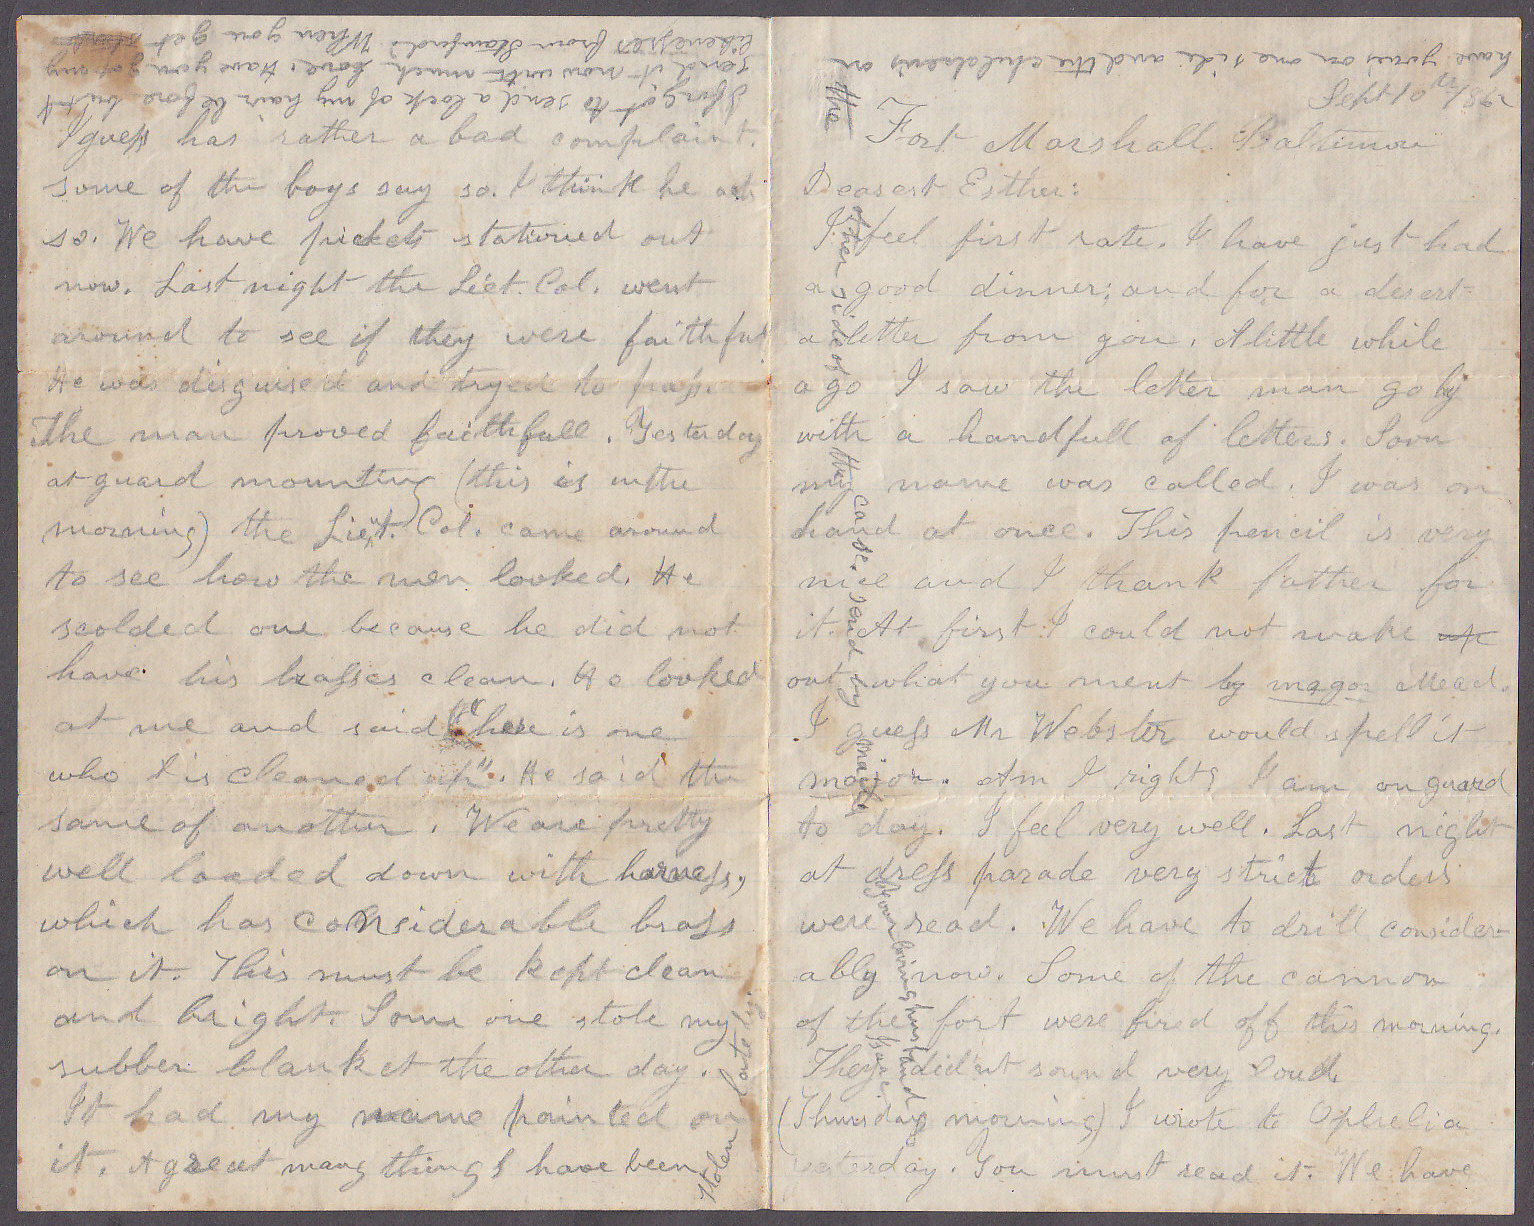 Sept 10th/862
Fort Marshall Baltimore
Dearest Esther:
I feel first rate. I have just had
a good dinner; and for a desert
a letter from you. A little while
ago I saw the letter man go by
with a handfull of letters. Soon
my name was called. I was on
hand at once. This pencil is very
nice and I thank father for
it. At first I could not make
out what you ment by magor Mead.
I guess Mr Webster would spell it
major. Am I right? I am on guard
to day. I feel very well. Last night
at dress parade very strict orders
were read. We have to drill consider-
ably now. Some of the cannon
of the fort were fired off this morning.
They did'nt sound very loud.
(Thursday morning) I wrote to Ophelia
yesterday. You must read it. We have
I guess has rather a bad complaint.
some of the boys say so. I think he acts
so. We have pickets stationed out
now. Last night the Liet. Col. went
around to see if they were faithful
He was disguised and tryed to pass.
The man proved faithfull. Yesterday
at guard mounting (this is in the
morning) the Lieut. Col. came around
to see how the men looked. He
scolded one because he did not
have his brasses clean. He looked
at me and said "here is one
who is cleaned up". He said the
same of another. We are pretty
well loaded down with harness,
which has considerable brass
on it. This must be kept clean
and bright. Some one stole my
rubber blanket the other day.
It had my name painted on
it. A great many things have been
stolen lately
I forgot to send a lock of my hair before but I
send it now with much love. Have you got my
likenesses from Stamford. When you get
have yours on one side and the children's on
the
other side of the case. send by
mail
Your loving husband